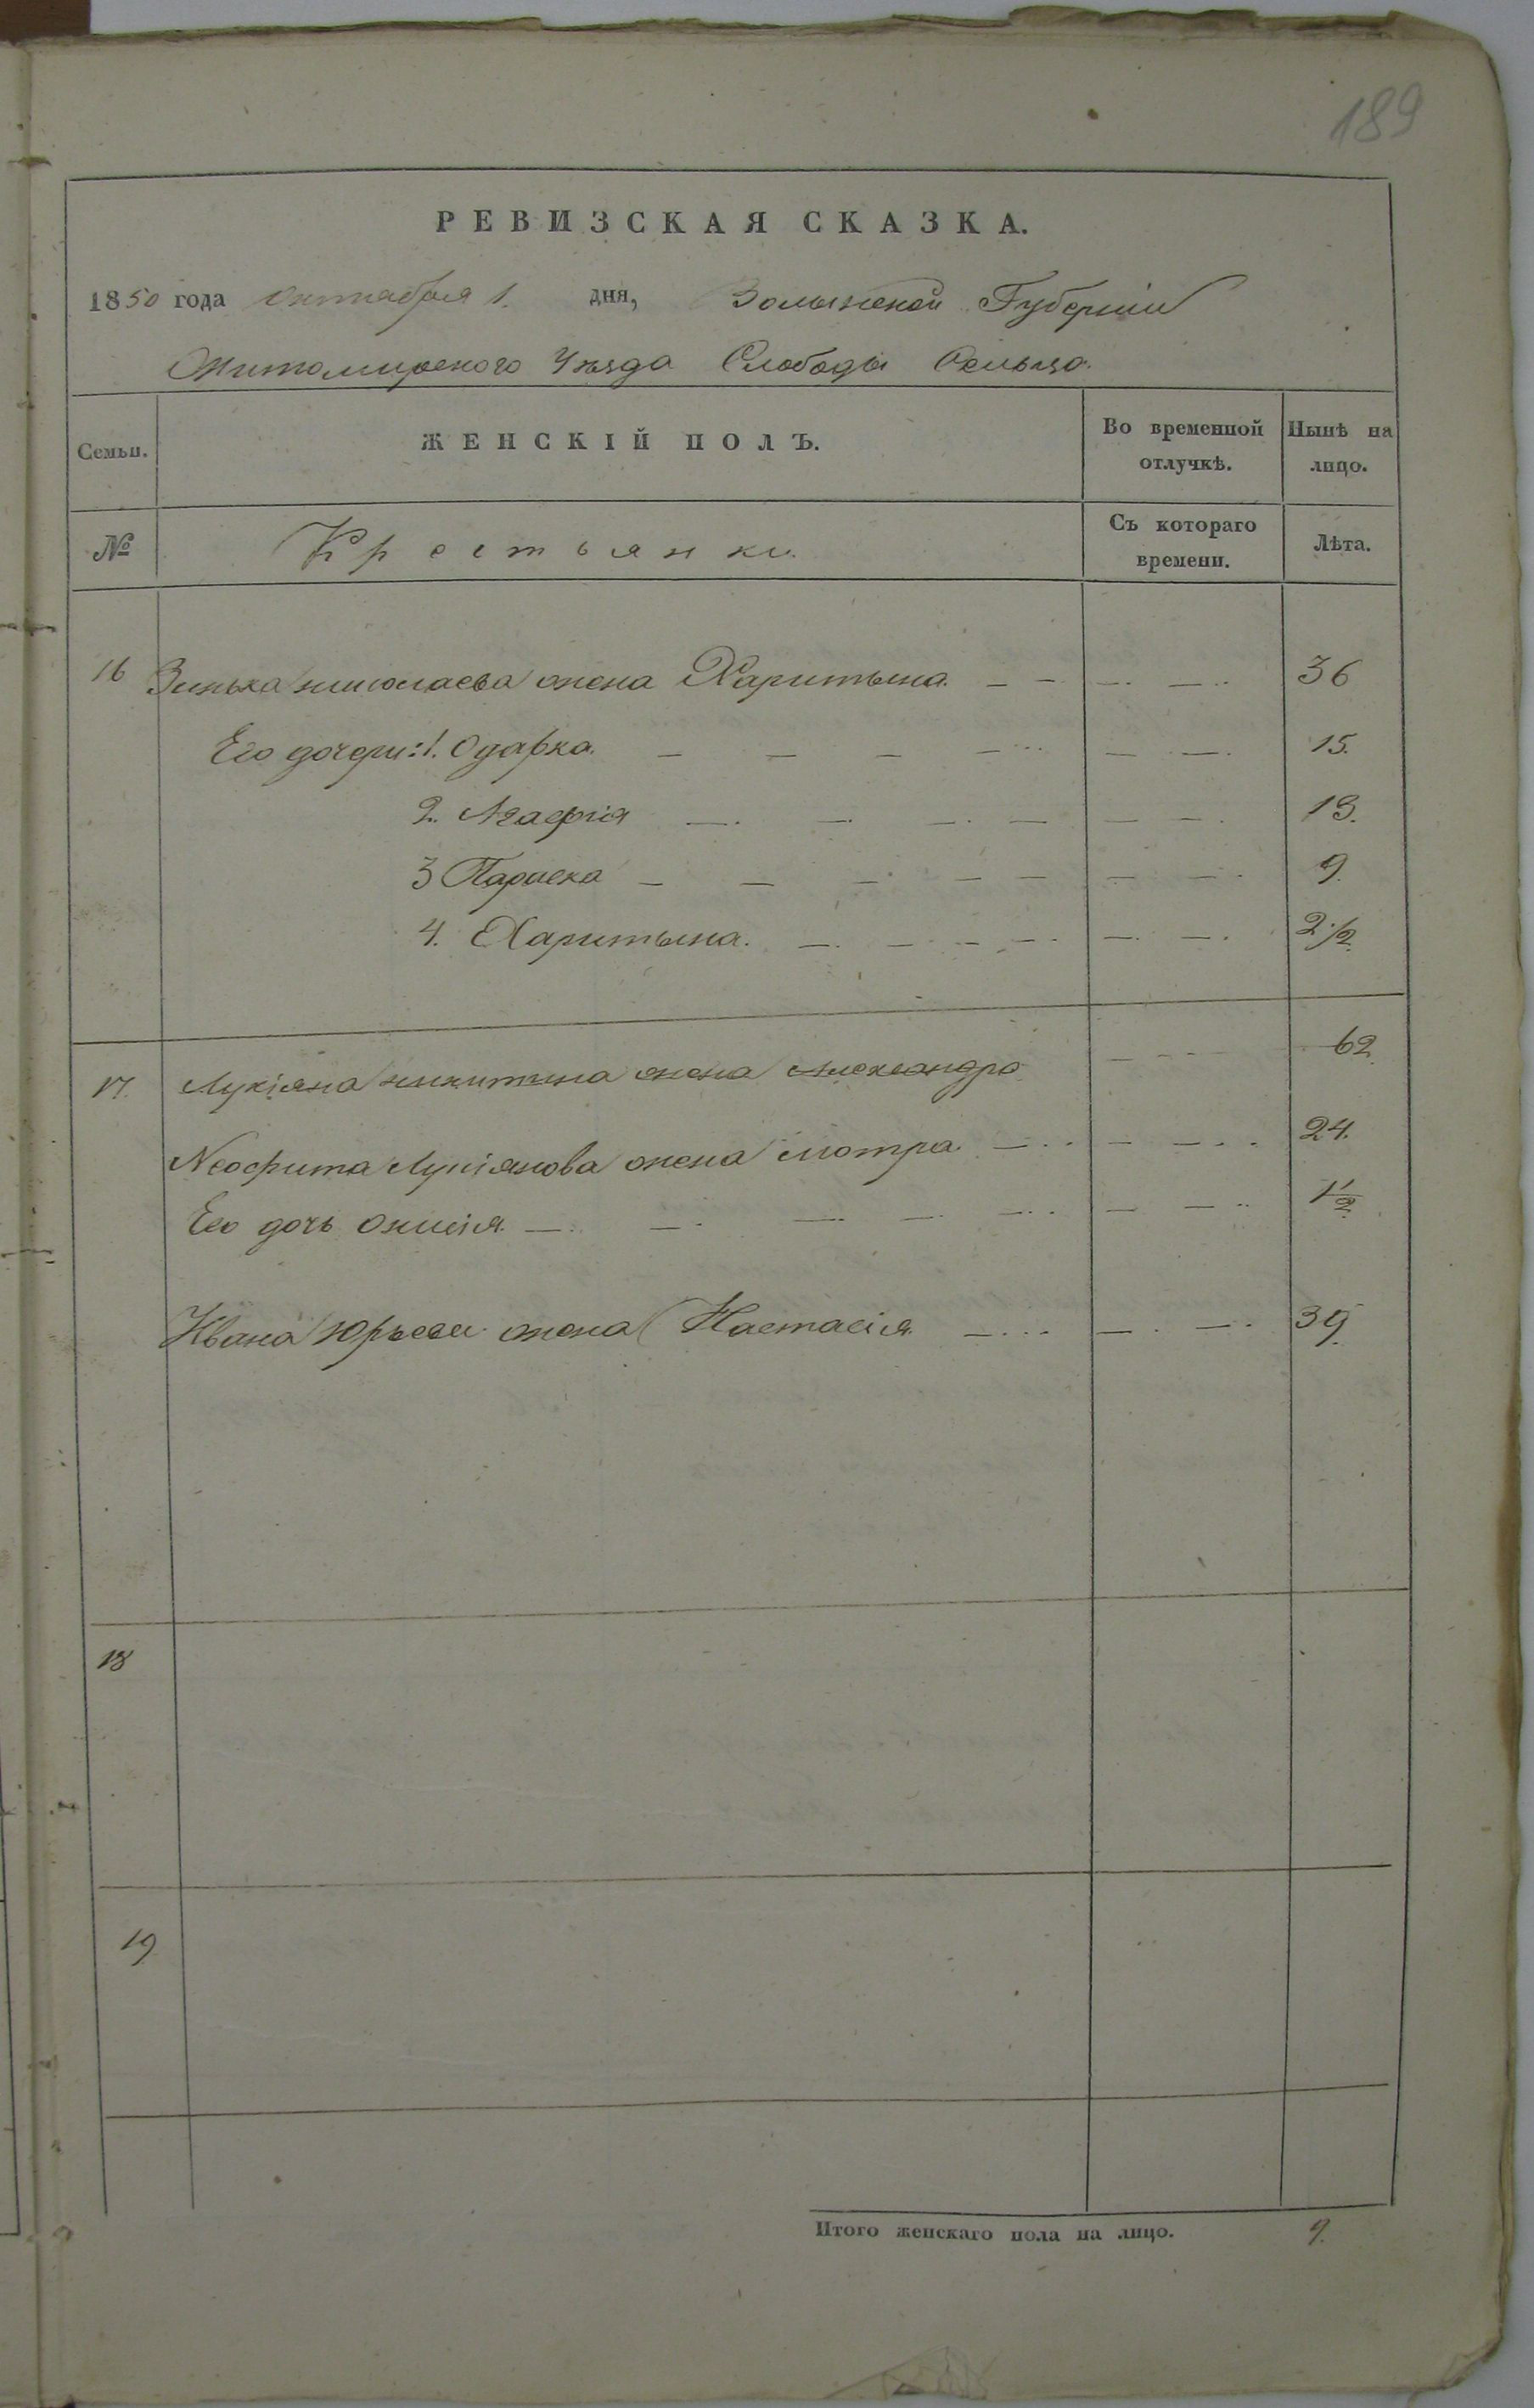 189
РЕВИЗСКАЯ СКАЗКА.
1850 года Октября 1. дня, Волынской Губерніи
Житомирского Уѣзда Слободы
Семьи. ЖЕНСКІЙ ПОЛЪ. Во временной отлучкѣ. Нынѣ на лицо.
№ Крестьянки. Съ котораго времени. Лѣта.
16 Зинька Николаева жена Харитына. 36
Его дочери: 1. Одарка. 15.
2. Агафія 13.
3 Параска 9.
4. Харитына. 2 1/2.
17. Лукіяна Никитина жена Александра 62
Неофита Лукіянова жена Мотра 24.
Его дочь Оксинія 1 1/2.
Ивана Юрьева жена Настасія. 39.
18
19
Итого женскаго пола на лицо. 9.